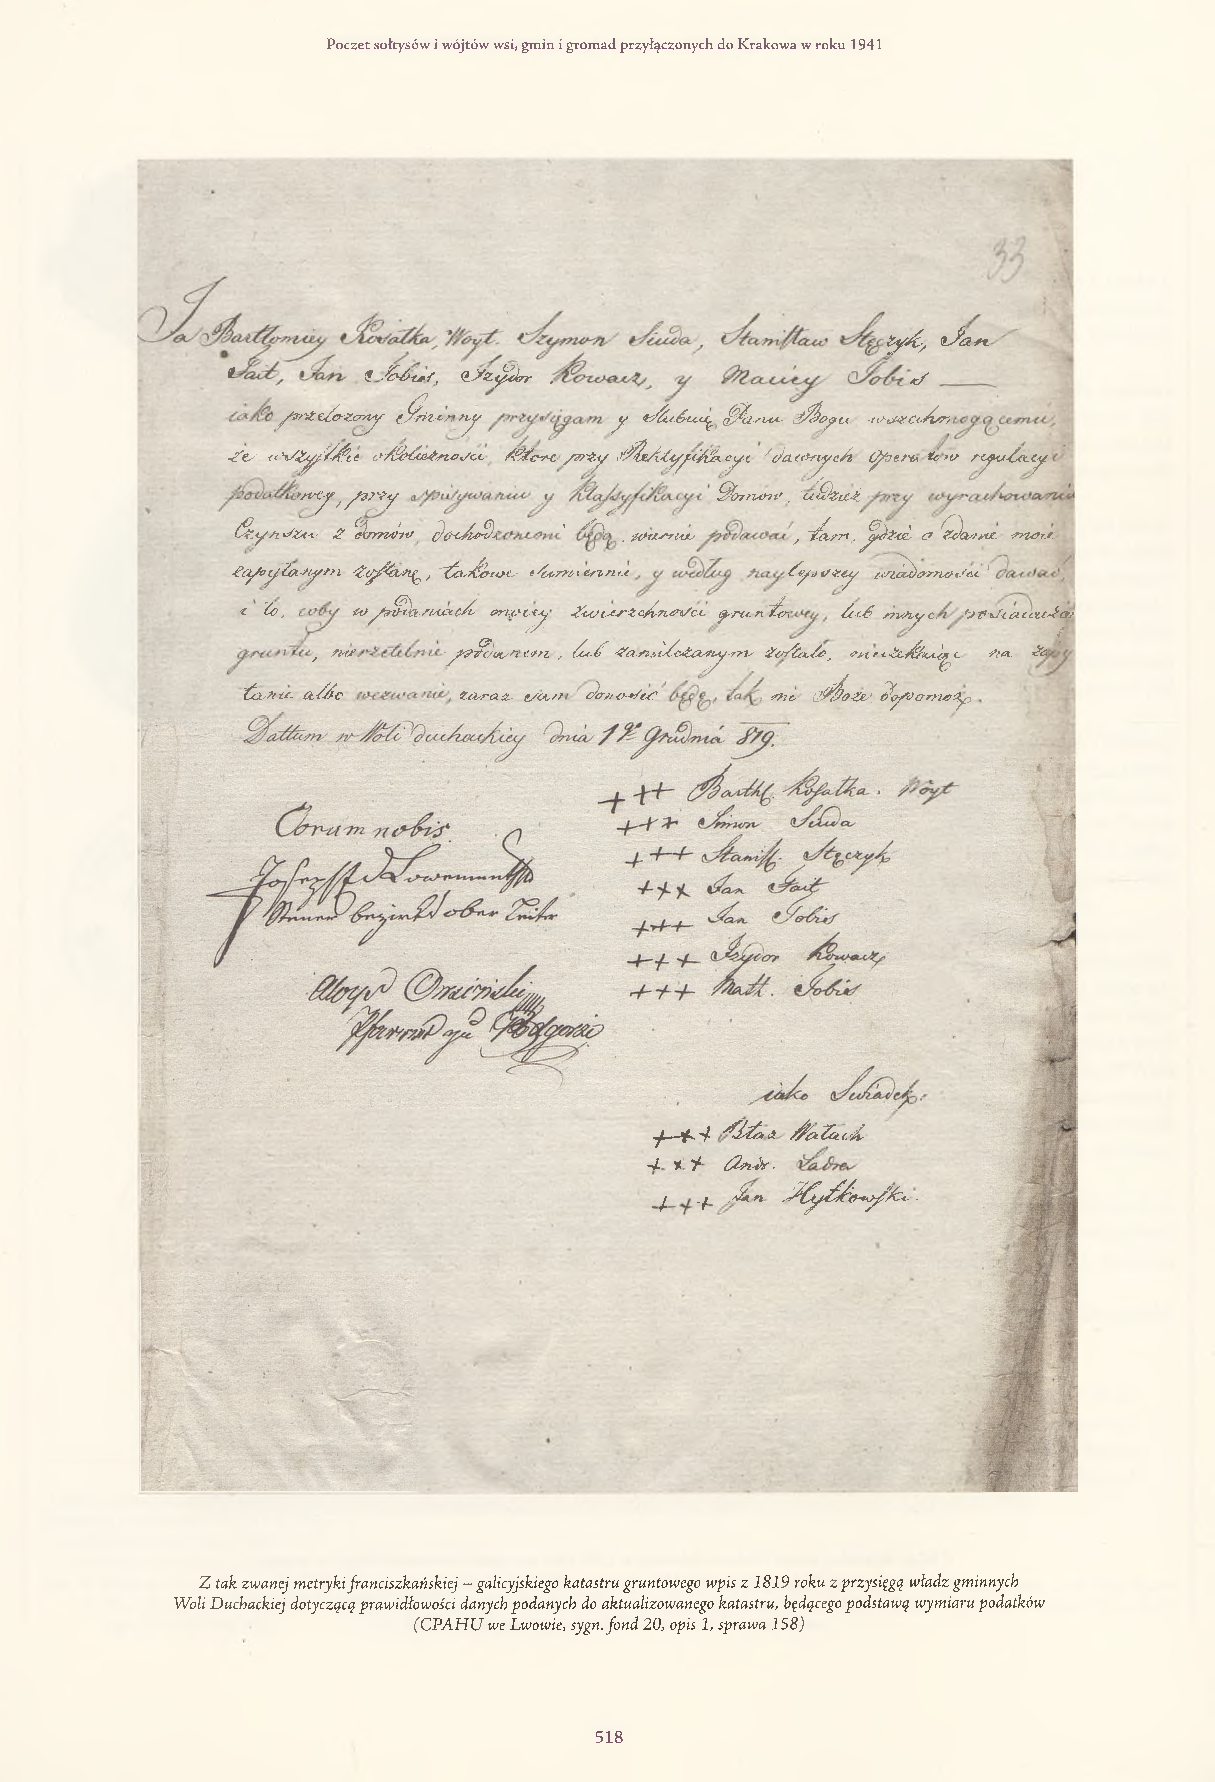 Poczet sołtysów i wójtów wsi, gmin i gromad przyłączonych do Krakowa w roku 1941
33
Ja Bartłomiey Kosałka, Woyt. Szymon Siuda, Stanisław Stęczyk, Jan
Fait, Jan Tobies, Jzydor Kowacz, y Maciey Tobies —
iako przełozony Gminny przysięgam y slubuię Panu Bogu wszechmogącemu,
że wszystkie okoliczności, ktore przy Rektyfikacyi dawnych operatów regulacyi
podatkowey, przy spisywaniu y klassyfikacyi Domów, tudzież przy wyrachowaniu
Czynszu z domów dochodzonemi będą, wiernie podawać, tam, gdzie o zdanie moie
zapytanym zostanę, takowe sumiennie, y według naylepszey wiadomości dawać,
i to, coby w podaniach moiey zwierzchności gruntowey, lub innych
gruntu, nierzetelnie podanem, lub zamilczanym zostało, nieczekaiąc na zapy
tanie albo wezwanie, zaraz sam donosić będę, tak mi Boże dopomoż.
Dattum w Woli duchackiey dnia 1go Grudnia 819.
+++ Barthl. Kosałka. Wóyt
Coram nobis
+++ Simon Siuda
+++ Stanisl. Stęczyk
+++ Jan Fait
Steuer bezirks ober Leiter
+++ Jan Tobies
+++ Jzydor Kowacz
Aloys
+++ Math. Tobies
Pfarrer zu Podgorze
iako Swiadek:
+++ Błaz Wałach
+++ Andr. Ladra
+++ Jan Hytkowski.
Z tak zwanej metryki franciszkańskiej – galicyjskiego katastru gruntowego wpis z 1819 roku z przysięgą władz gminnych
Woli Duchackiej dotyczącą prawidłowości danych podanych do aktualizowanego katastru, będącego podstawą wymiaru podatków
(CPAHU we Lwowie, sygn. fond 20, opis 1, sprawa 158)
518